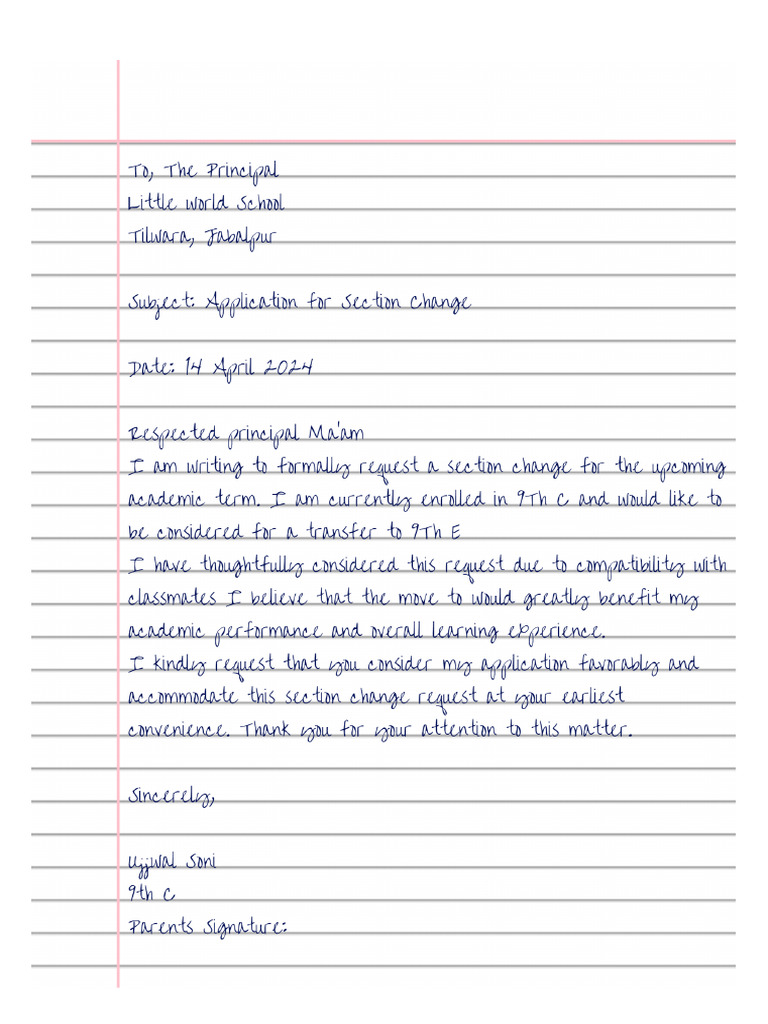 To, The Principal
Little World School
Tilwara, Jabalpur
Subject: Application for Section Change
Date: 14 April 2024
Respected principal Ma'am
I am writing to formally request a section change for the upcoming
academic term. I am currently enrolled in 9Th C and would like to
be considered for a transfer to 9Th E
I have thoughtfully considered this request due to compatibility with
classmates I believe that the move to would greatly benefit my
academic performance and overall learning experience.
I kindly request that you consider my application favorably and
accommodate this section change request at your earliest
convenience. Thank you for your attention to this matter.
Sincerely,
Ujjwal Soni
9th C
Parents Signature: